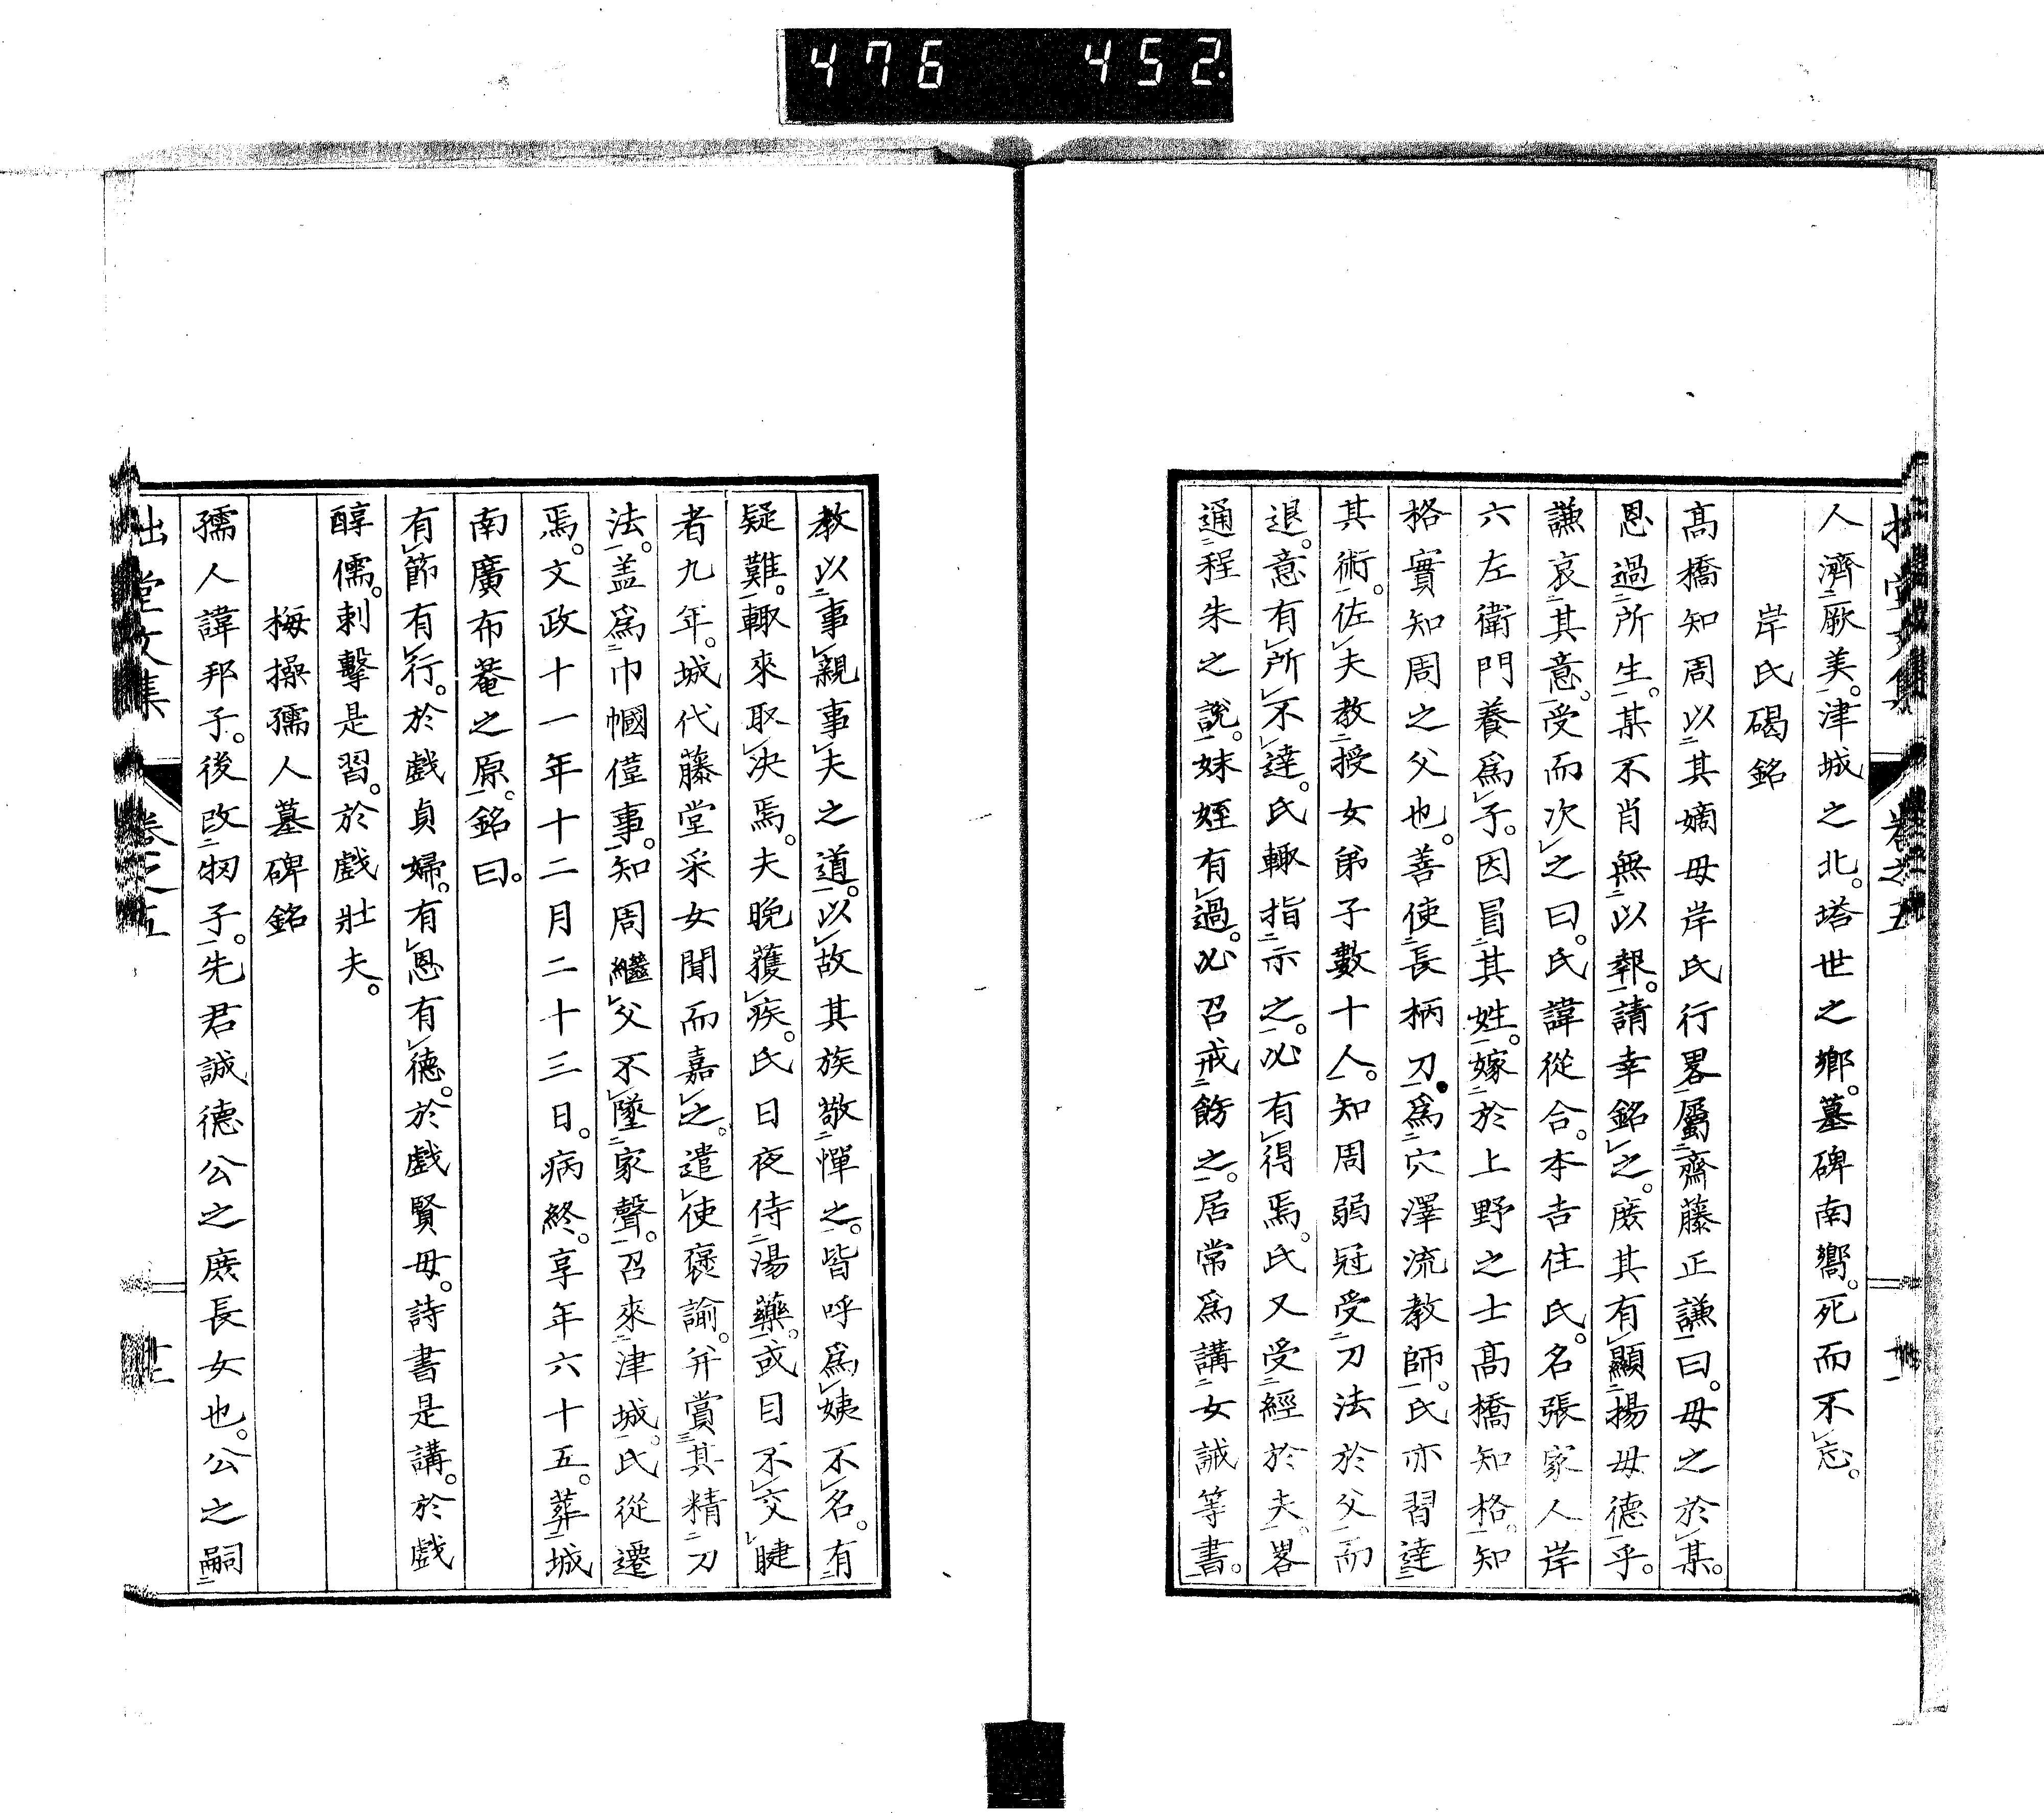 476 452.
人濟厥美。津城之北。塔世之鄉。墓碑南嚮。死而不忘。
岸氏碣銘
髙橋知周以其嫡母岸氏行畧屬齋藤正謙曰。母之於某。
恩過所生。某不肖無以報。請幸銘之。庻其有顯揚母德乎。
謙哀其意。受而次之曰。氏諱從合。本吉住氏。名張家人岸
六左衛門養爲子。因冒其姓。嫁於上野之士髙橋知格。知
格實知周之父也。善使長柄刀。爲穴澤流教師。氏亦習達
其術。佐夫教授女弟子數十人。知周弱冠受刀法於父。而
退。意有所不達。氏輙指示之。必有得焉。氏又受經於夫。畧
通程朱之說。妹姪有過。必召戒飭之。居常爲講女誡等書。
教以事親事夫之道。以故其族敬憚之。皆呼爲姨不名。有
疑難。輙來取决焉。夫晩獲疾。氏日夜侍湯藥。或目不交睫
者九年。城代藤堂采女聞而嘉之。遣使褒諭。并賞其精刀
法。盖爲巾幗僅事。知周繼父不墜家聲。召來津城。氏從遷
焉。文政十一年十二月二十三日。病終。享年六十五。葬城
南廣布菴之原。銘曰。
有節有行。於戲貞婦。有恩有德。於戲賢母。詩書是講。於戲
醇儒。刺擊是習。於戲壯夫。
梅操孺人墓碑銘
孺人諱邦子。後改牣子。先君誠德公之庻長女也。公之嗣
堂文集 卷之五